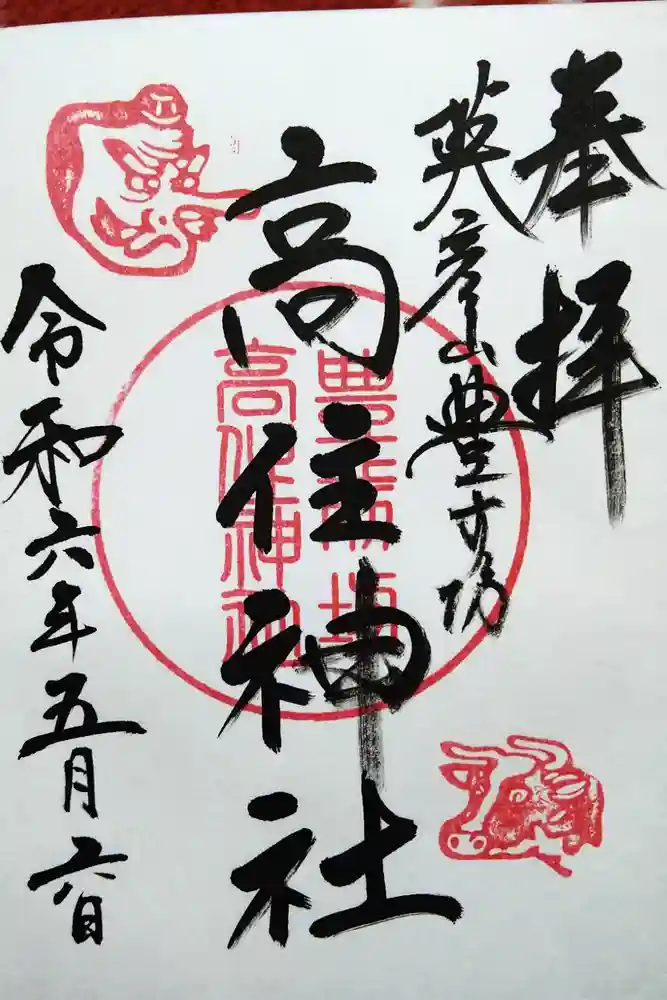 奉拝
英彦山豊前坊
高住神社
令和六年五月六日
豊前坊
高住神社